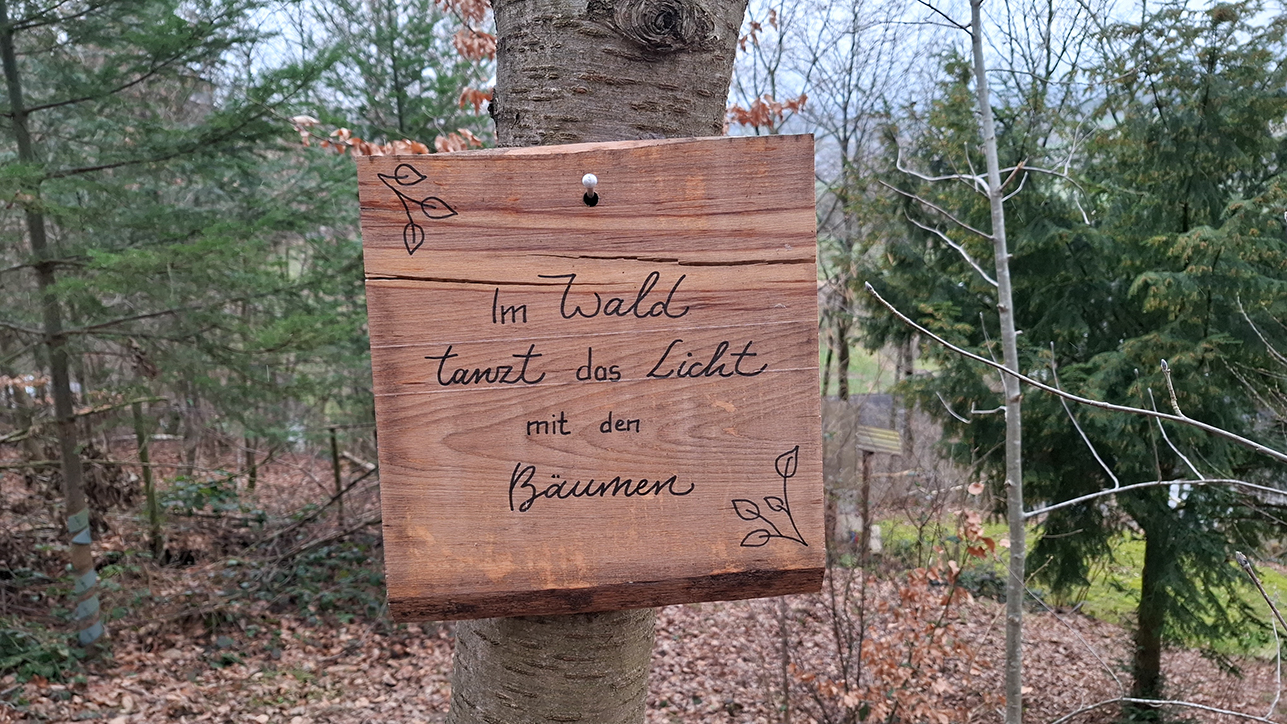 Im Wald
tanzt das Licht
mit den
Bäumen